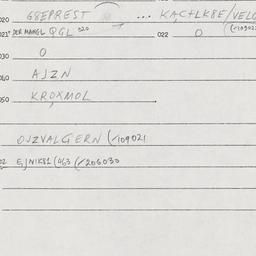 020 G8EPREST ... KAC+LK8E/VELO
021* DER MANGL QGL 020 022 O (-109021
030 O
040 AJZN
050 KROXMOL
OJZVALGERN (-109021
02 EJNIK81 (463 (-206030